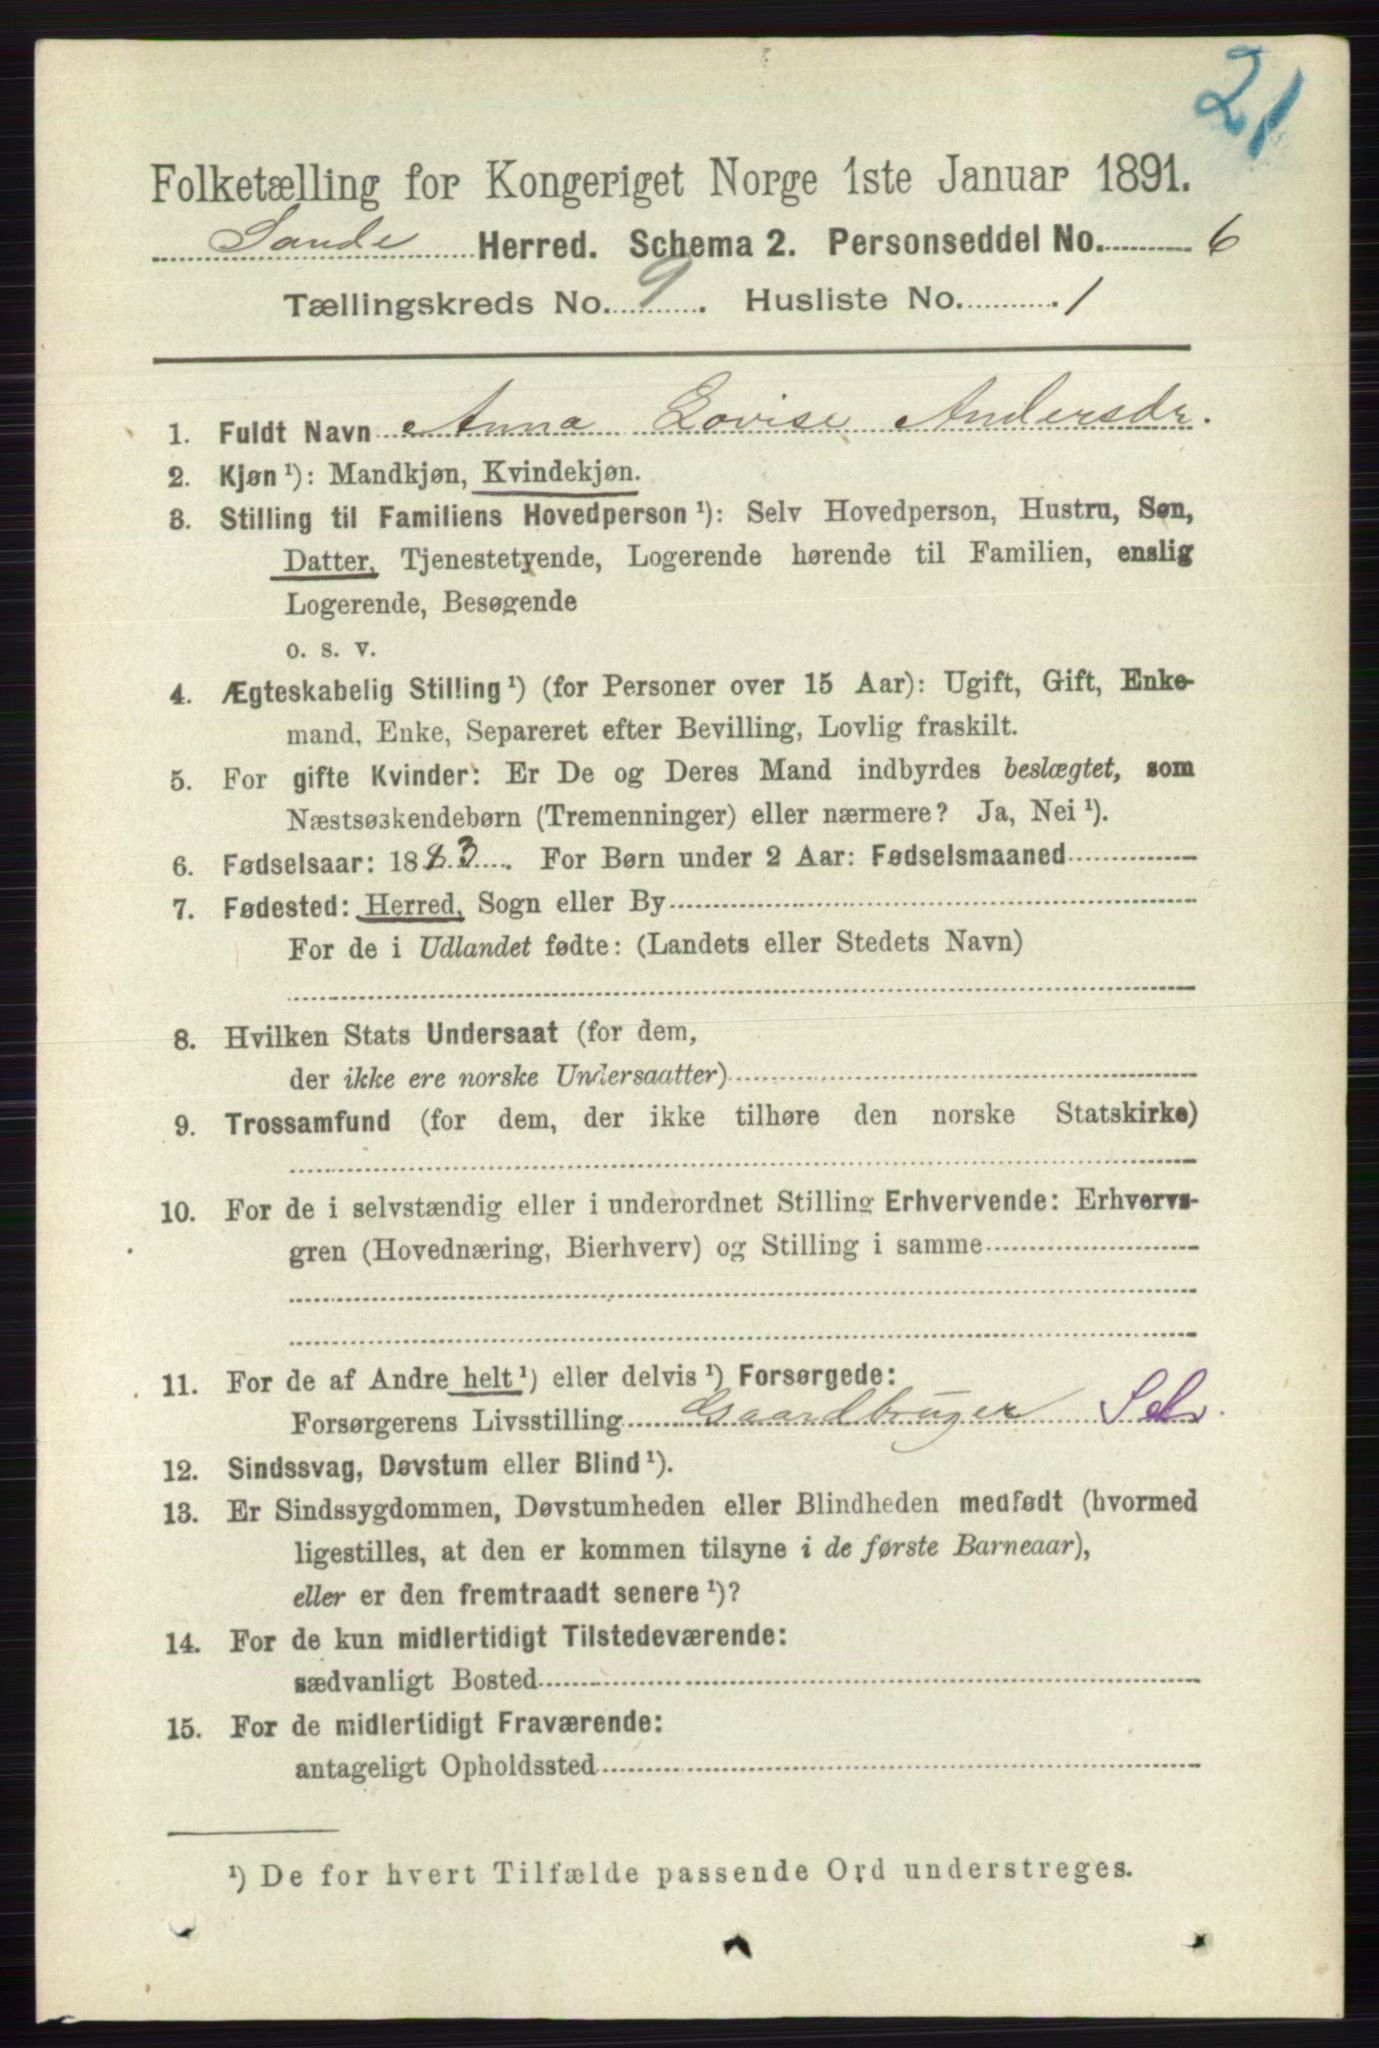 21
Folketælling for Kongeriget Norge 1ste Januar 1891.
Sande Herred. Schema 2. Personseddel No. 6
Tællingskreds No. 9. Husliste No. 1
1. Fuldt Navn Anna Lovise Andersdr.
2. Kjøn ¹): Mandkjøn, Kvindekjøn.
3. Stilling til Familiens Hovedperson ¹): Selv Hovedperson, Hustru, Søn,
Datter, Tjenestetyende, Logerende hørende til Familien, enslig
Logerende, Besøgende
o. s. v.
4. Ægteskabelig Stilling ¹) (for Personer over 15 Aar): Ugift, Gift, Enke-
mand, Enke, Separeret efter Bevilling, Lovlig fraskilt.
5. For gifte Kvinder: Er De og Deres Mand indbyrdes beslægtet, som
Næstsøskendebørn (Tremenninger) eller nærmere? Ja, Nei ¹).
6. Fødselsaar: 1883. For Børn under 2 Aar: Fødselsmaaned
7. Fødested: Herred, Sogn eller By
For de i Udlandet fødte: (Landets eller Stedets Navn)
8. Hvilken Stats Undersaat (for dem,
der ikke ere norske Undersaatter)
9. Trossamfund (for dem, der ikke tilhøre den norske Statskirke)
10. For de i selvstændig eller i underordnet Stilling Erhvervende: Erhvervs-
gren (Hovednæring, Bierhverv) og Stilling i samme
11. For de af Andre helt ¹) eller delvis ¹) Forsørgede:
Forsørgerens Livsstilling Gaardbruger Selv.
12. Sindssvag, Døvstum eller Blind ¹).
13. Er Sindssygdommen, Døvstumheden eller Blindheden medfødt (hvormed
ligestilles, at den er kommen tilsyne i de første Barneaar),
eller er den fremtraadt senere ¹)?
14. For de kun midlertidigt Tilstedeværende:
sædvanligt Bosted
15. For de midlertidigt Fraværende:
antageligt Opholdssted
¹) De for hvert Tilfælde passende Ord understreges.